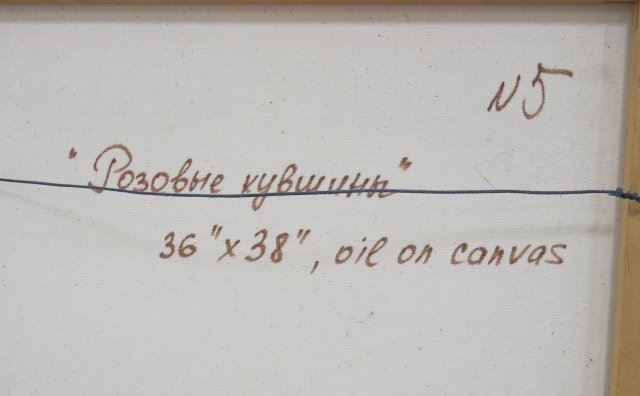 N5
"Розовые кувшины"
36" x 38", oil on canvas